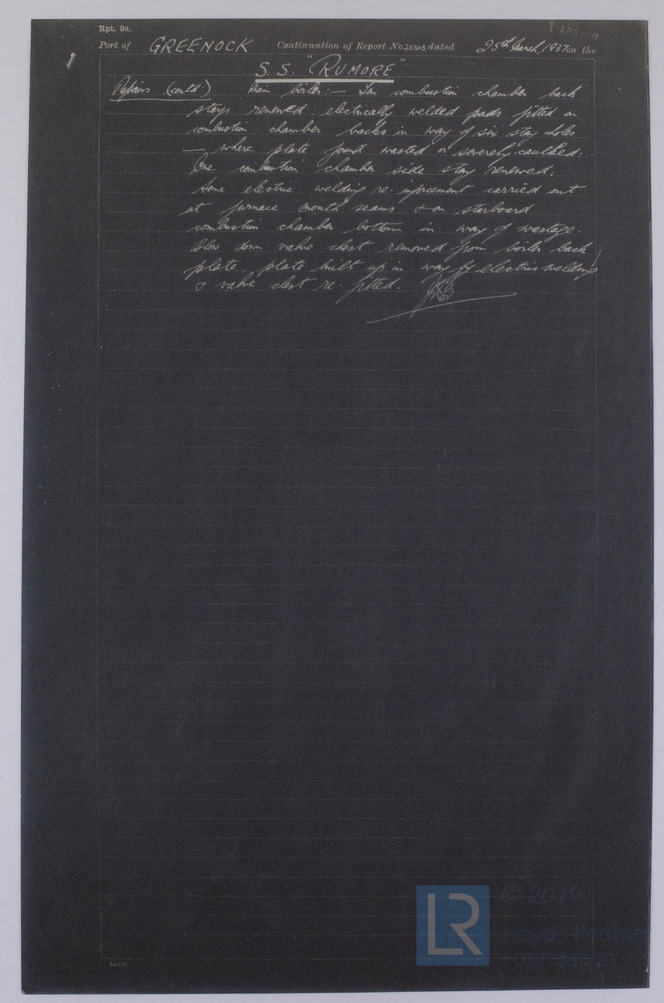 Rpt. 9a.
1 APR 1937
Port of GREENOCK Continuation of Report No. dated 25th March, 1937 on the
S.S. "RUMORE"
Repairs (contd.) Main boiler:- Ten combustion chamber back
stays renewed. electrically welded pads fitted on
combustion chamber backs in way of six stay holes
- where plate found wasted or severely caulked:
One combustion chamber side stay renewed:
Some electric welding re-inforcement carried out
at furnace mouth seams & on starboard
combustion chamber bottom in way of wastage.
Blow down valve chest removed from boiler back
plate, plate built up in way by electric welding
& valve chest re-fitted.
LR
© 2019
Lloyd's Register
Foundation